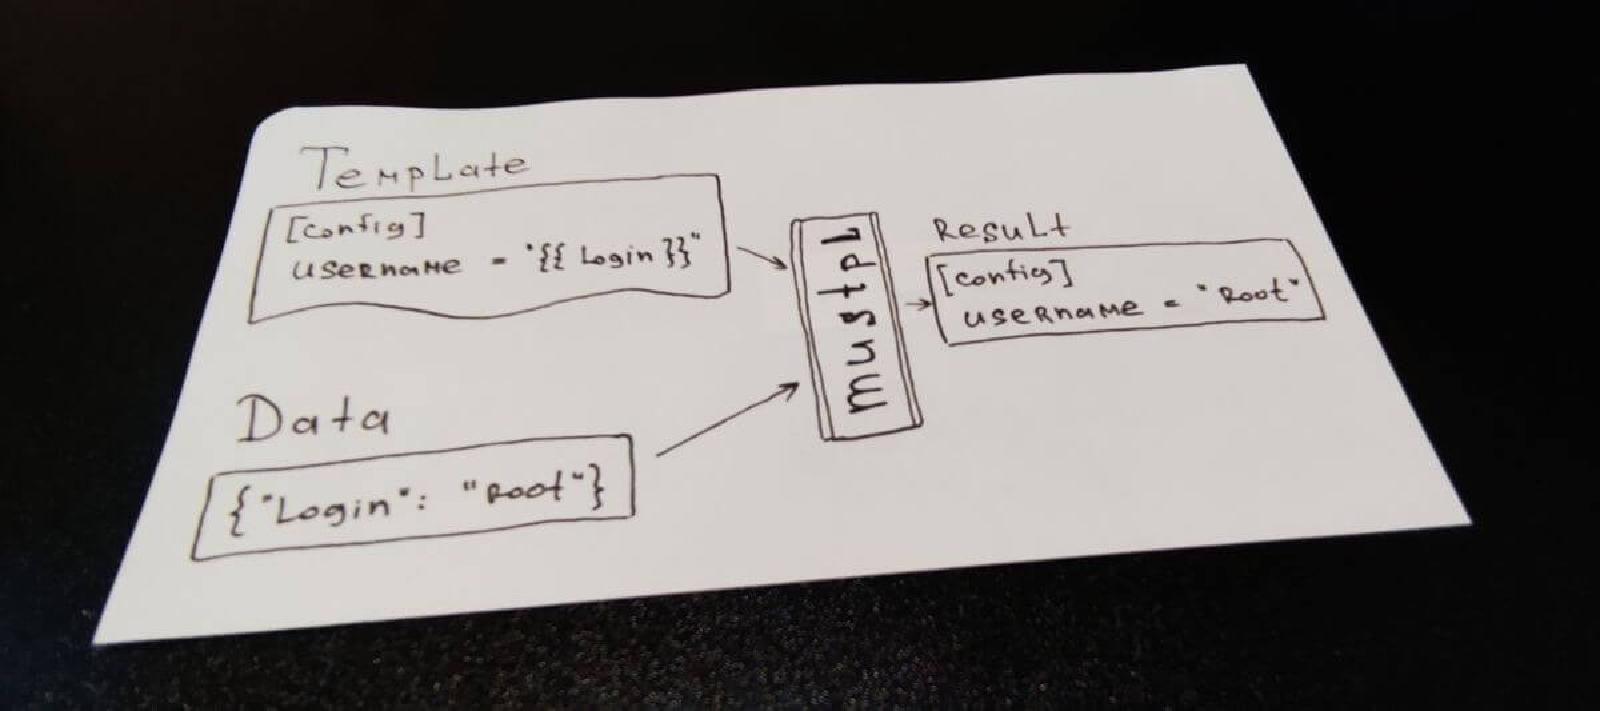 Template
[config]
username = "{{ Login }}"
Data
{"Login": "root"}
mustpl
Result
[config]
username = "root"